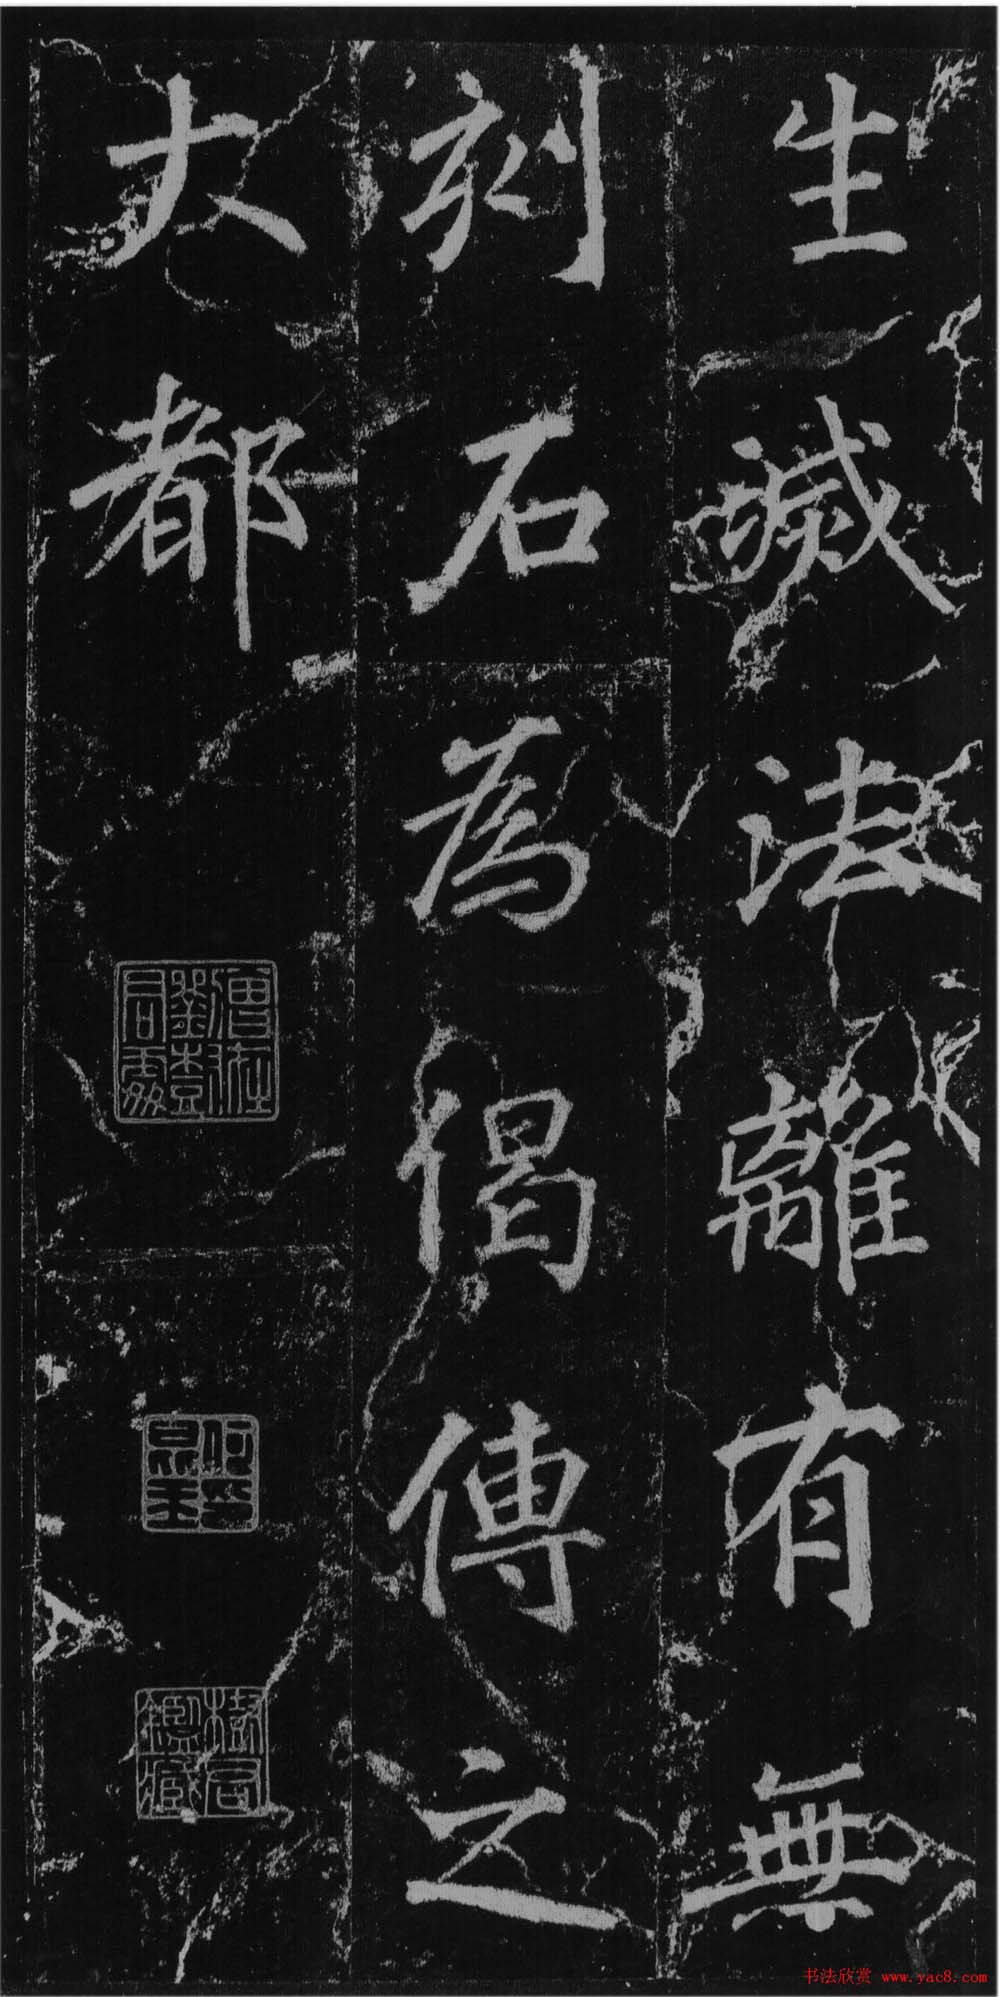 生滅法離有無
刻石爲偈傳之
大都
書法欣赏 www.yac8.com